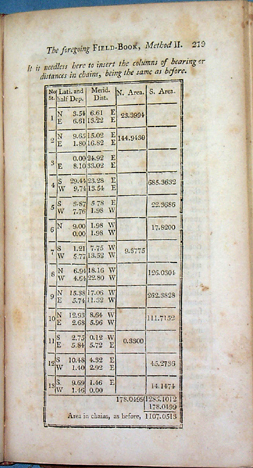 The foregoing FIELD-BOOK, Method II. 219
It is needless here to insert the columns of bearing or
distances in chains, being the same as before.
No St. Lati. and half Dep. Merid. Dist. N. Area. S. Area.
1 N 3.54 6.61 E 23.3994
E 6.61 13.22 E
2 N 9.65 15.02 E 144.9430
E 1.80 16.82 E
3 0.00 24.92 E
E 8.10 33.02 E
4 S 29.44 23.28 E 685.3632
W 9.74 13.54 E
5 S 3.87 5.78 E 22.3686
W 7.76 1.98 W
6 N 9.00 1.98 W 17.8200
0.00 1.98 W
7 S 1.21 7.75 W 9.3775
W 5.77 13.52 W
8 N 6.94 18.16 W 126.0304
W 4.64 22.80 W
9 N 15.38 17.06 W 262.3828
E 5.74 11.32 W
10 N 12.93 8.64 W 111.7152
E 2.68 5.96 W
11 S 2.75 0.12 W 0.3300
E 5.84 5.72 E
12 S 10.48 4.32 E 45.2736
W 1.40 2.92 E
13 S 9.69 1.46 E 14.1474
W 1.46 0.00
178.0499 1285.1012
178.0499
Area in chains, as before, 1107.0513